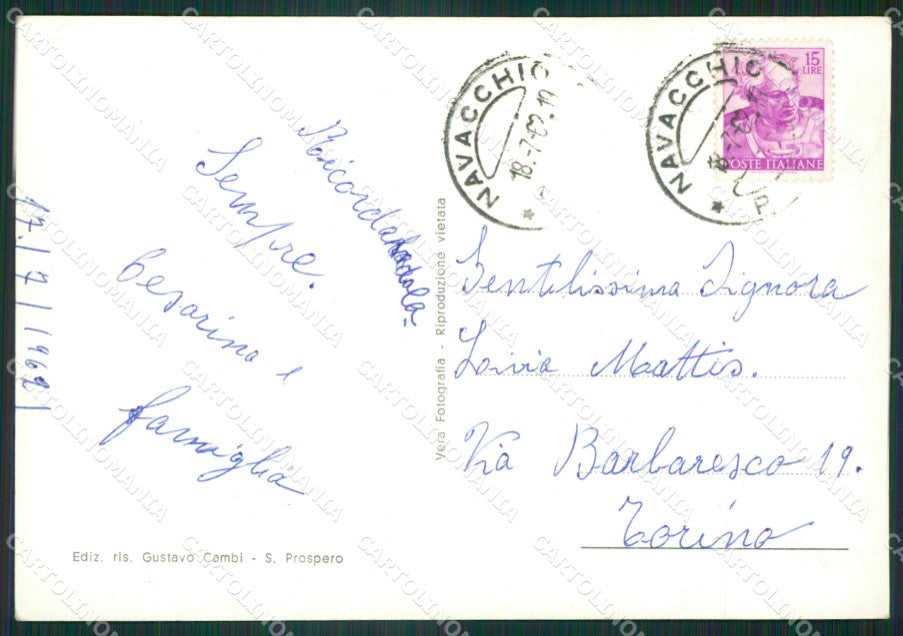 Ricordandola
Sempre.
Cesarina e
famiglia
17/7/1962
Ediz. ris. Gustavo Cambi - S. Prospero
Vera Fotografia - Riproduzione vietata
NAVACCHIO
18.-7.62.19
NAVACCHIO
18.-7.62
P
15
LIRE
POSTE ITALIANE
Gentilissima Signora
Livia Mattis.
Via Barbaresco 19.
Torino
CARTOLINOMANIA